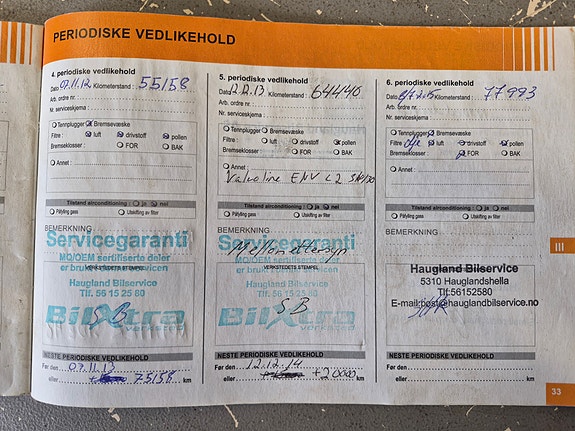 PERIODISKE VEDLIKEHOLD
4. periodiske vedlikehold
Dato 07.11.12 Kilometerstand: 55158
Arb. ordre nr.
Nr. serviceskjema
Tennplugger Bremsevæske
Filtre: luft drivstoff pollen
Bremseklosser: FOR BAK
Annet:
Tilstand airconditioning: ja nei
Påfylling gass Utskifting av filter
BEMERKNING
Servicegaranti
MO/OEM sertifiserte deler
er brukt ved servicen
VERKSTEDETS STEMPEL
Haugland Bilservice
Tlf. 56 15 25 80
BilXtra
verksted
SB
NESTE PERIODISKE VEDLIKEHOLD
Før den 07.11.13
eller 75158 km
5. periodiske vedlikehold
Dato 12.12.13 Kilometerstand: 64440
Arb. ordre nr.
Nr. serviceskjema:
Tennplugger Bremsevæske
Filtre: luft drivstoff pollen
Bremseklosser: FOR BAK
Annet:
Valvoline ENV C2 5W/30
Tilstand airconditioning: ja nei
Påfylling gass Utskifting av filter
BEMERKNING
Servicegaranti
Mellom ettersyn
MO/OEM sertifiserte deler
er brukt ved servicen
VERKSTEDETS STEMPEL
Haugland Bilservice
Tlf. 56 15 25 80
BilXtra
verksted
SB
NESTE PERIODISKE VEDLIKEHOLD
Før den 12.12.14
eller +20000 km
6. periodiske vedlikehold
Dato Kilometerstand: 77993
Arb. ordre nr.
Nr. serviceskjema:
Tennplugger Bremsevæske
Filtre: olje luft drivstoff pollen
Bremseklosser: FOR BAK
Annet:
Tilstand airconditioning: ja nei
Påfylling gass Utskifting av filter
BEMERKNING
VERKSTEDETS STEMPEL
Haugland Bilservice
5310 Hauglandshella
Tlf:56152580
E-mail:post@hauglandbilservice.no
NESTE PERIODISKE VEDLIKEHOLD
Før den
eller km
III
33